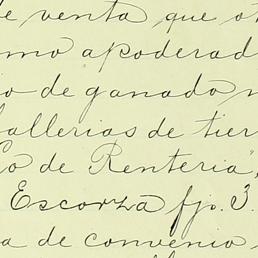 de venta que ot
omo apoderad
io de ganado m
ballerias de tier
Co de Renteria",
Escorza fjs. 3.
a de convenio